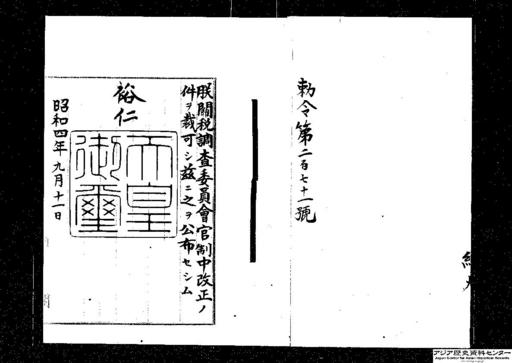 勅令第二百七十一號
朕關税調査委員會官制中改正ノ
件ヲ裁可シ茲ニ之ヲ公布セシム
裕仁
天皇
御璽
昭和四年九月十一日
アジア歴史資料センター
Japan Center for Asian Historical Records